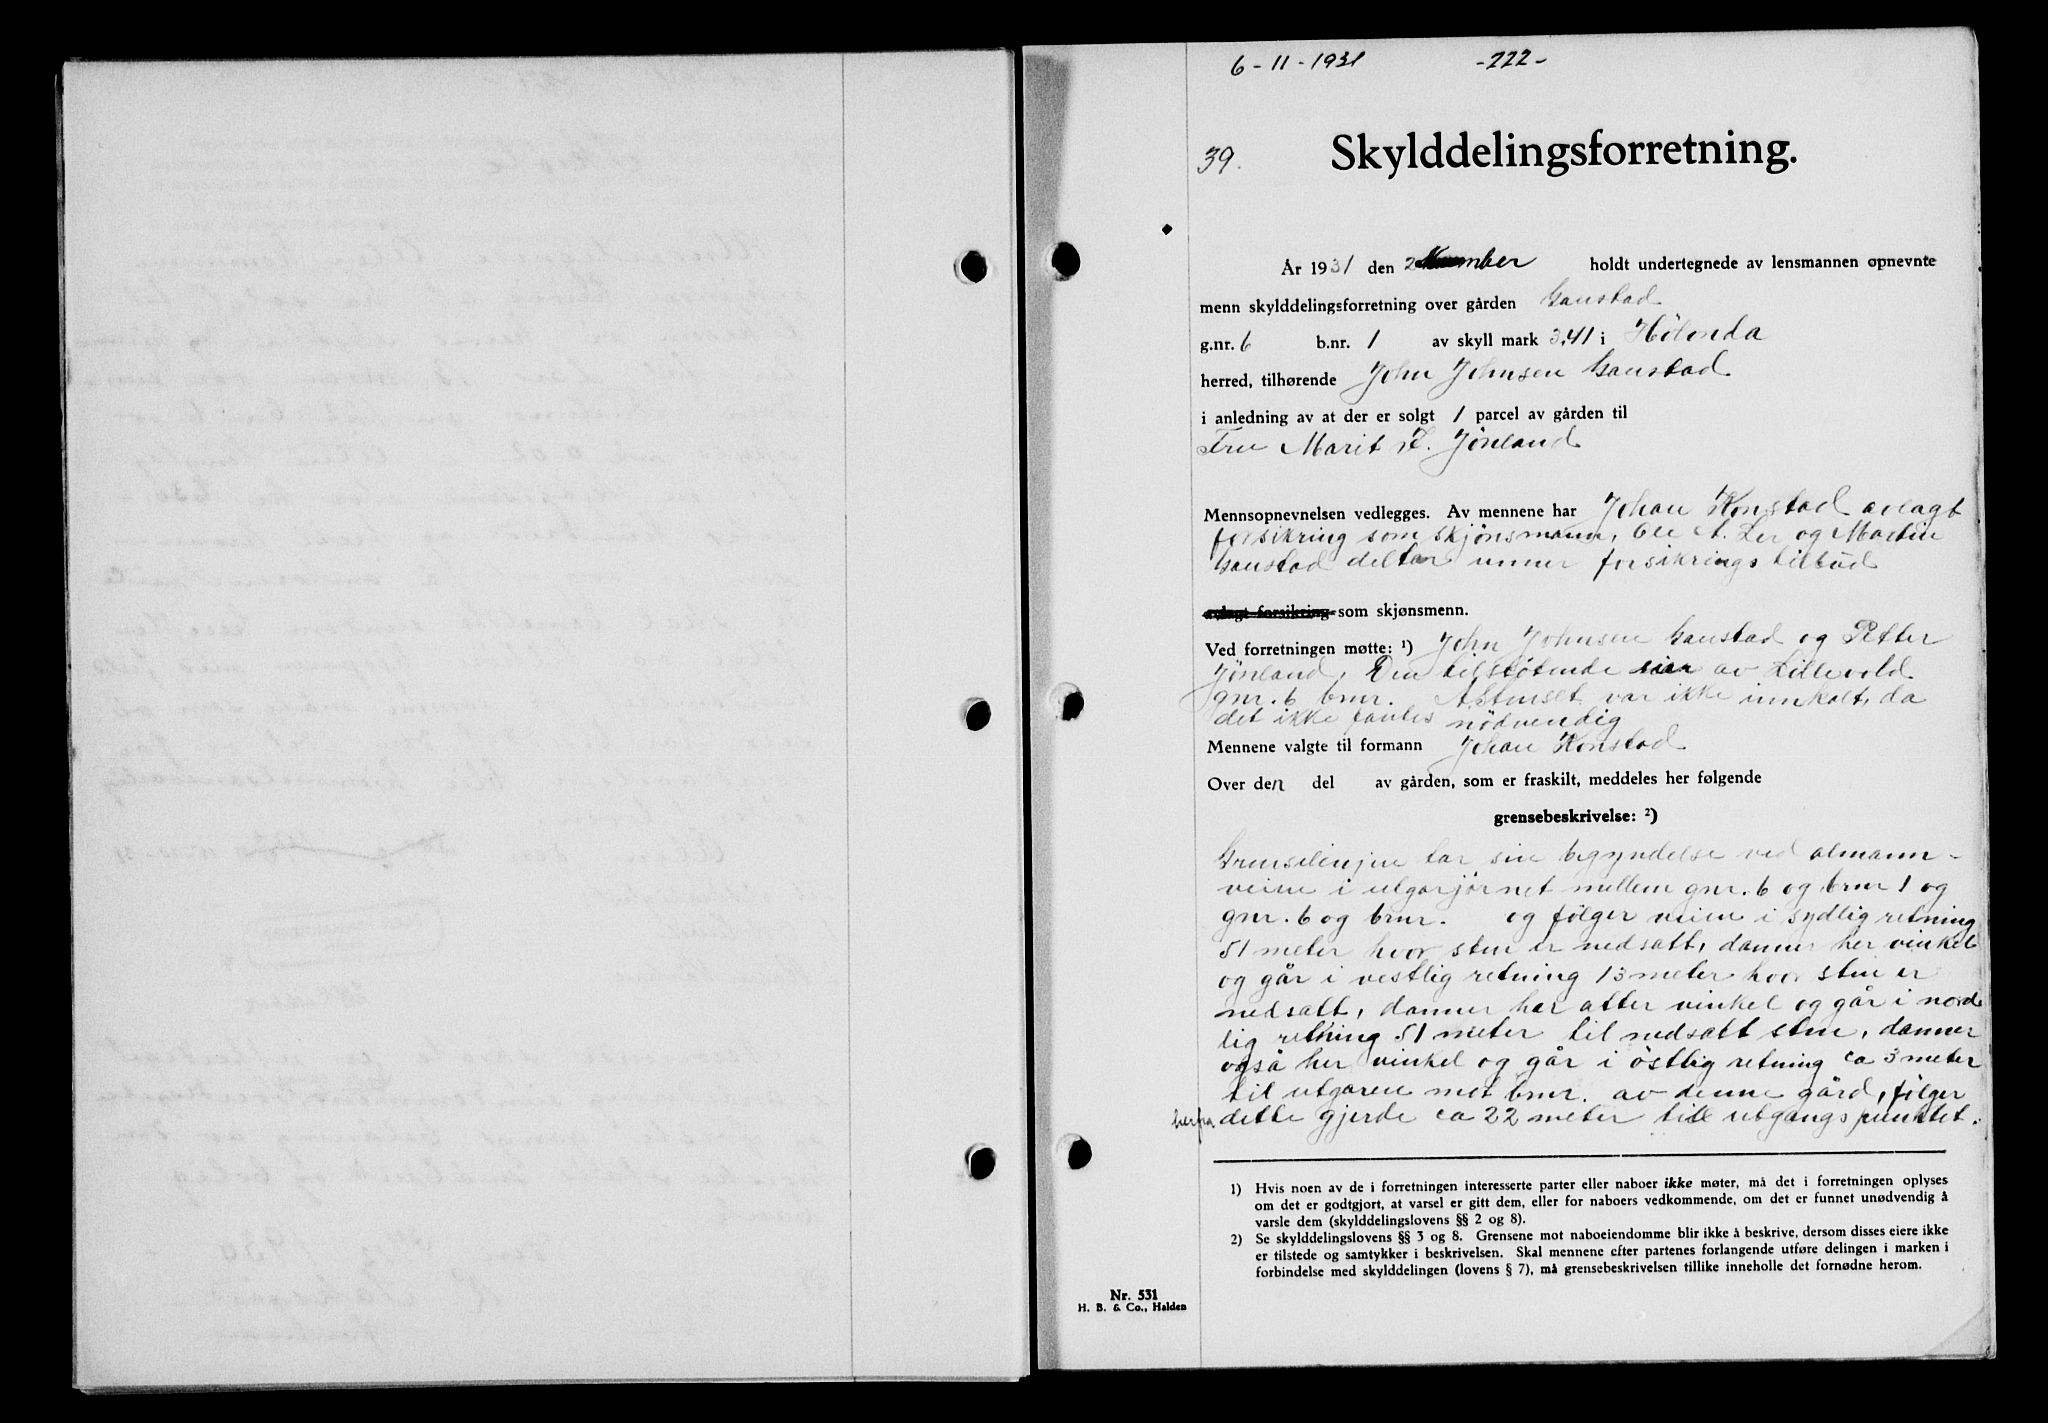 6-11-1931 -222-
39. Skylddelingsforretning.
År 1931 den 2 November holdt undertegnede av lensmannen opnevnte
menn skylddelingsforretning over gården Gaustad
g.nr. 6 b.nr. 1 av skyll mark 3,41 i Hölonda
herred, tilhørende John Johnsen Gaustad
i anledning av at der er solgt 1 parcel av gården til
Fru Marit Jönland
Mennsopnevnelsen vedlegges. Av mennene har Johan Konstad avlagt
forsikring som skjönsmann, Ole A. Ler og Martin
Gaustad deltar unner forsikrings tilbud
avlagt forsikring som skjønsmenn.
Ved forretningen møtte: ¹) John Johnsen Gaustad og Petter
Jönland. Den tilstötende eier av Lillevold
gnr. 6 bnr. A. Stenset var ikke innkalt, da
det ikke fantes nödvendig
Mennene valgte til formann Johan Konstad
Over den del av gården, som er fraskilt, meddeles her følgende
grensebeskrivelse: ²)
Grenselinjen tar sin begyndelse ved almann-
veien i utgarjornet mellem gnr. 6 og bnr 1 og
gnr. 6 og bnr. og fölger veien i sydlig retning
51 meter hvor sten er nedsatt, danner her vinkel
og går i vestlig retning 13 meter hvor sten er
nedsatt, danner her atter vinkel og går i nord
lig retning 51 meter til nedsatt sten, danner
også her vinkel og går i östlig retning ca 3 meter
til utgaren mot bnr. av denne gård, fölger
herfra dette gjerde ca 22 meter till utgangspunktet.
1) Hvis noen av de i forretningen interesserte parter eller naboer ikke møter, må det i forretningen oplyses
om det er godtgjort, at varsel er gitt dem, eller for naboers vedkommende, om det er funnet unødvendig å
varsle dem (skylddelingslovens §§ 2 og 8).
2) Se skylddelingslovens §§ 3 og 8. Grensene mot naboeiendomme blir ikke å beskrive, dersom disses eiere ikke
er tilstede og samtykker i beskrivelsen. Skal mennene efter partenes forlangende utføre delingen i marken i
forbindelse med skylddelingen (lovens § 7), må grensebeskrivelsen tillike inneholle det fornødne herom.
Nr. 531
H. B. & Co., Halden